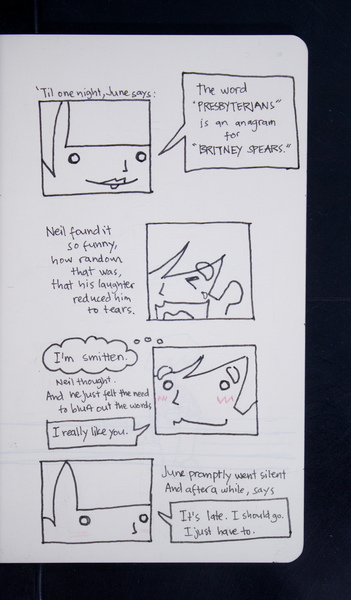 'Til one night, June says:
the word
"PRESBYTERIANS"
is an anagram
for
"BRITNEY SPEARS."
Neil found it
so funny,
how random
that was,
that his laughter
reduced him
to tears.
I'm smitten.
Neil thought.
And he just felt the need
to blurt out the words
I really like you.
June promptly went silent
And after a while, says
It's late. I should go.
I just have to.